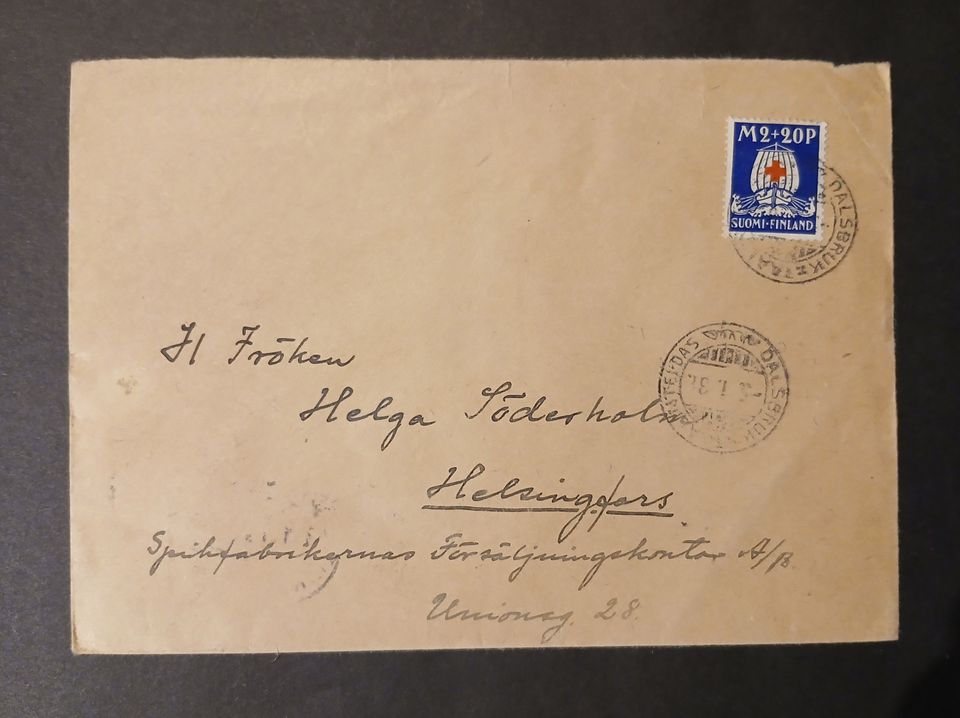 M 2+20P
SUOMI-FINLAND
DALSBRUK
DALSBRUK
Hl Fröken
Helga Söderholm
Helsingfors
Spikfabrikernas Försäljningskontor A/B
Unionsg. 28.